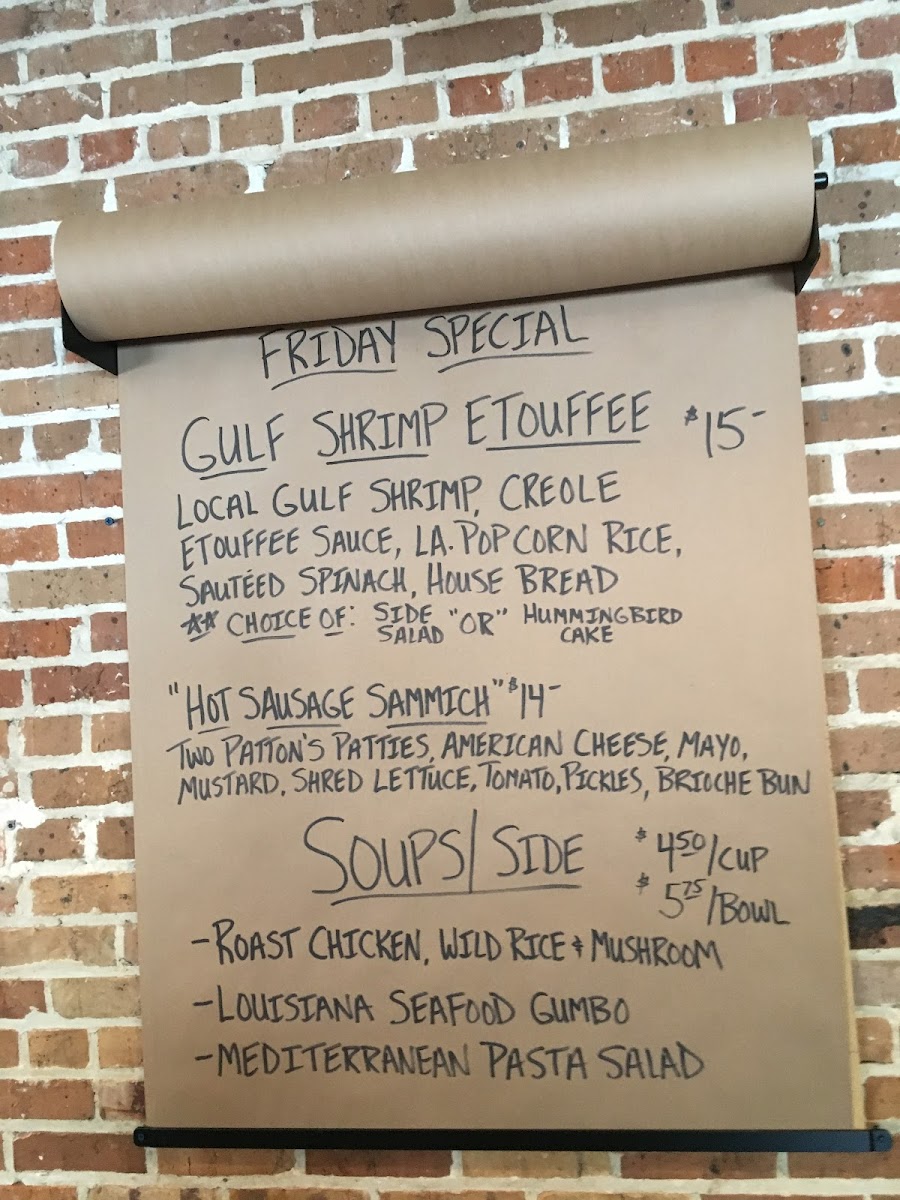 FRIDAY SPECIAL
GULF SHRIMP ETOUFFEE $15-
LOCAL GULF SHRIMP, CREOLE
ETOUFFEE SAUCE, LA. POPCORN RICE,
SAUTÉED SPINACH, HOUSE BREAD
** CHOICE OF: SIDE SALAD "OR" HUMMINGBIRD CAKE
"HOT SAUSAGE SAMMICH" $14-
TWO PATTON'S PATTIES, AMERICAN CHEESE, MAYO,
MUSTARD, SHRED LETTUCE, TOMATO, PICKLES, BRIOCHE BUN
SOUPS/SIDE $4.50/CUP
$5.75/BOWL
-ROAST CHICKEN, WILD RICE & MUSHROOM
-LOUISIANA SEAFOOD GUMBO
-MEDITERRANEAN PASTA SALAD